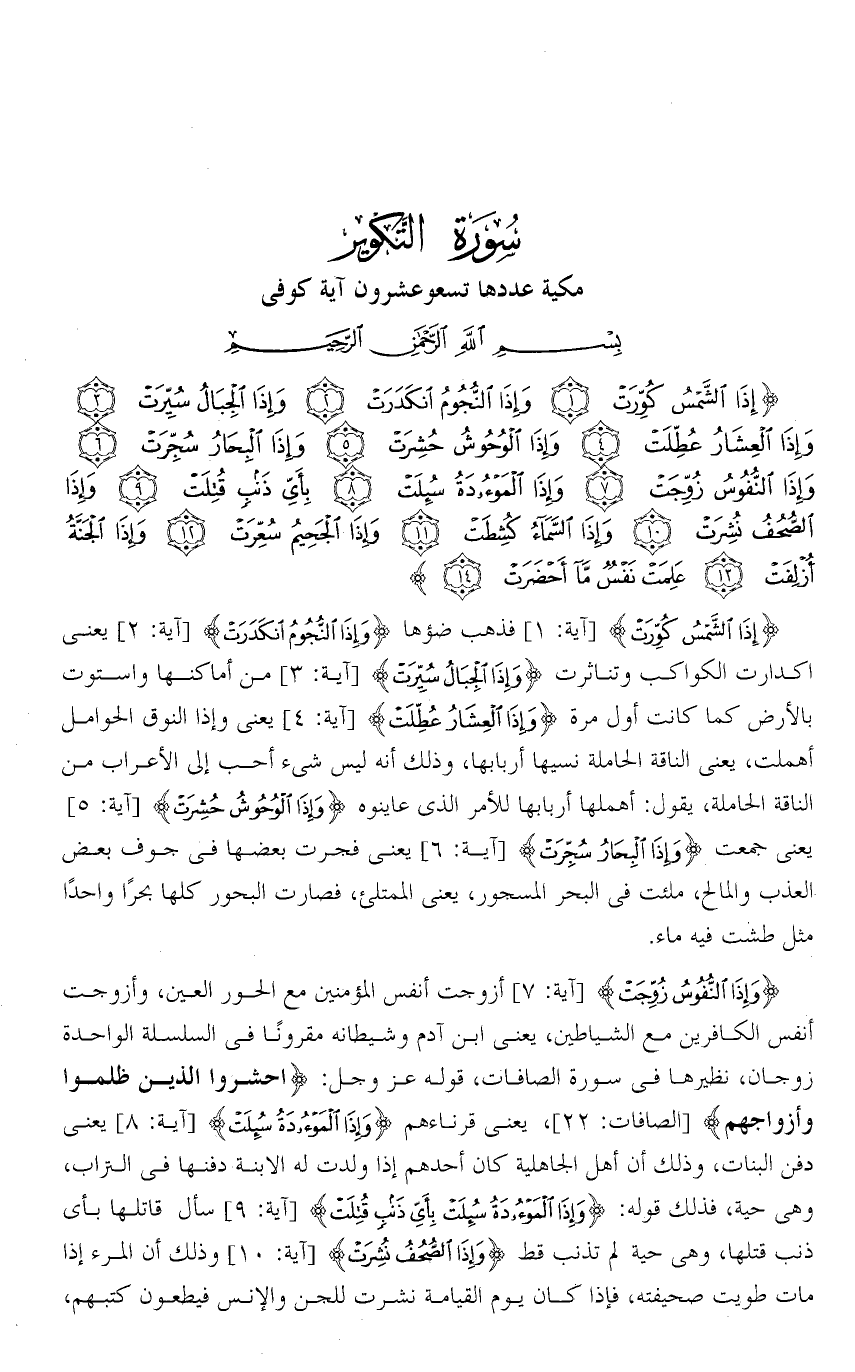 سُورَة التَّكْوير
مكية عددها تسعوعشرون آية كوفى
بِسْمِ ٱللَّهِ ٱلرَّحْمَٰنِ ٱلرَّحِيمِ
﴿ إِذَا ٱلشَّمْسُ كُوِّرَتْ ١ وَإِذَا ٱلنُّجُومُ ٱنكَدَرَتْ ٢ وَإِذَا ٱلْجِبَالُ سُيِّرَتْ ٣
وَإِذَا ٱلْعِشَارُ عُطِّلَتْ ٤ وَإِذَا ٱلْوُحُوشُ حُشِرَتْ ٥ وَإِذَا ٱلْبِحَارُ سُجِّرَتْ ٦
وَإِذَا ٱلنُّفُوسُ زُوِّجَتْ ٧ وَإِذَا ٱلْمَوْءُۥدَةُ سُئِلَتْ ٨ بِأَىِّ ذَنۢبٍ قُتِلَتْ ٩ وَإِذَا
ٱلصُّحُفُ نُشِرَتْ ١٠ وَإِذَا ٱلسَّمَآءُ كُشِطَتْ ١١ وَإِذَا ٱلْجَحِيمُ سُعِّرَتْ ١٢ وَإِذَا ٱلْجَنَّةُ
أُزْلِفَتْ ١٣ عَلِمَتْ نَفْسٌ مَّآ أَحْضَرَتْ ١٤ ﴾
﴿إِذَا ٱلشَّمْسُ كُوِّرَتْ﴾ [آية: ١] فذهب ضؤها ﴿وَإِذَا ٱلنُّجُومُ ٱنكَدَرَتْ﴾ [آية: ٢] يعنى
اكدارت الكواكب وتناثرت ﴿وَإِذَا ٱلْجِبَالُ سُيِّرَتْ﴾ [آية: ٣] من أماكنها واستوت
بالأرض كما كانت أول مرة ﴿وَإِذَا ٱلْعِشَارُ عُطِّلَتْ﴾ [آية: ٤] يعنى وإذا النوق الحوامل
أهملت، يعنى الناقة الحاملة نسيها أربابها، وذلك أنه ليس شىء أحب إلى الأعراب من
الناقة الحاملة، يقول: أهملها أربابها للأمر الذى عاينوه ﴿وَإِذَا ٱلْوُحُوشُ حُشِرَتْ﴾ [آية: ٥]
يعنى جمعت ﴿وَإِذَا ٱلْبِحَارُ سُجِّرَتْ﴾ [آية: ٦] يعنى فجرت بعضها فى جوف بعض
العذب والمالح، ملئت فى البحر المسجور، يعنى الممتلئ، فصارت البحور كلها بحرًا واحدًا
مثل طشت فيه ماء.
﴿وَإِذَا ٱلنُّفُوسُ زُوِّجَتْ﴾ [آية: ٧] أزوجت أنفس المؤمنين مع الحور العين، وأزوجت
أنفس الكافرين مع الشياطين، يعنى ابن آدم وشيطانه مقرونًا فى السلسلة الواحدة
زوجان، نظيرها فى سورة الصافات، قوله عز وجل: ﴿احشروا الذين ظلموا
وأزواجهم﴾ [الصافات: ٢٢]، يعنى قرناءهم ﴿وَإِذَا ٱلْمَوْءُۥدَةُ سُئِلَتْ﴾ [آية: ٨] يعنى
دفن البنات، وذلك أن أهل الجاهلية كان أحدهم إذا ولدت له الابنة دفنها فى التراب،
وهى حية، فذلك قوله: ﴿وَإِذَا ٱلْمَوْءُۥدَةُ سُئِلَتْ بِأَىِّ ذَنۢبٍ قُتِلَتْ﴾ [آية: ٩] سأل قاتلها بأى
ذنب قتلها، وهى حية لم تذنب قط ﴿وَإِذَا ٱلصُّحُفُ نُشِرَتْ﴾ [آية: ١٠] وذلك أن المرء إذا
مات طويت صحيفته، فإذا كان يوم القيامة نشرت للجن والإنس فيطعون كتبهم،